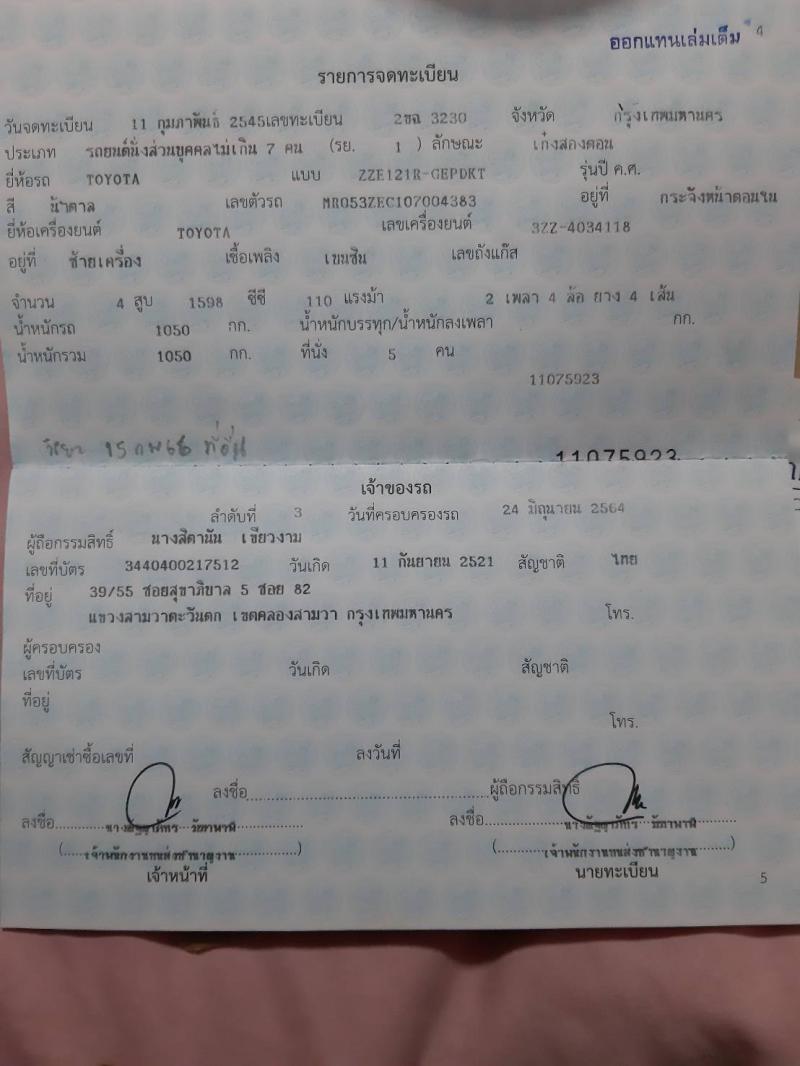 ออกแทนเล่มเต็ม 4
รายการจดทะเบียน
วันจดทะเบียน 11 กุมภาพันธ์ 2545 เลขทะเบียน 2ขฉ 3230 จังหวัด กรุงเทพมหานคร
ประเภท รถยนต์นั่งส่วนบุคคลไม่เกิน 7 คน (รย. 1 ) ลักษณะ เก๋งสองตอน
ยี่ห้อรถ TOYOTA แบบ ZZE121R-GEPDKT รุ่นปี ค.ศ.
สี น้ำตาล เลขตัวรถ MR053ZEC107004383 อยู่ที่ กระจังหน้าตอนบน
ยี่ห้อเครื่องยนต์ TOYOTA เลขเครื่องยนต์ 3ZZ-4034118
อยู่ที่ ซ้ายเครื่อง เชื้อเพลิง เบนซิน เลขถังแก๊ส
จำนวน 4 สูบ 1598 ซีซี 110 แรงม้า 2 เพลา 4 ล้อ ยาง 4 เส้น
น้ำหนักรถ 1050 กก. น้ำหนักบรรทุก/น้ำหนักลงเพลา กก.
น้ำหนักรวม 1050 กก. ที่นั่ง 5 คน
11075923
11075923
เจ้าของรถ
ลำดับที่ 3 วันที่ครอบครองรถ 24 มิถุนายน 2564
ผู้ถือกรรมสิทธิ์ นางสิตานัน เขียวงาม
เลขที่บัตร 3440400217512 วันเกิด 11 กันยายน 2521 สัญชาติ ไทย
ที่อยู่ 39/55 ซอยสุขาภิบาล 5 ซอย 82
แขวงสามวาตะวันตก เขตคลองสามวา กรุงเทพมหานคร โทร.
ผู้ครอบครอง
เลขที่บัตร วันเกิด สัญชาติ
ที่อยู่
โทร.
สัญญาเช่าซื้อเลขที่ ลงวันที่
ลงชื่อ ผู้ถือกรรมสิทธิ์
ลงชื่อ ลงชื่อ
(เจ้าพนักงานขนส่งชำนาญงาน) (เจ้าพนักงานขนส่งชำนาญงาน)
เจ้าหน้าที่ นายทะเบียน
5